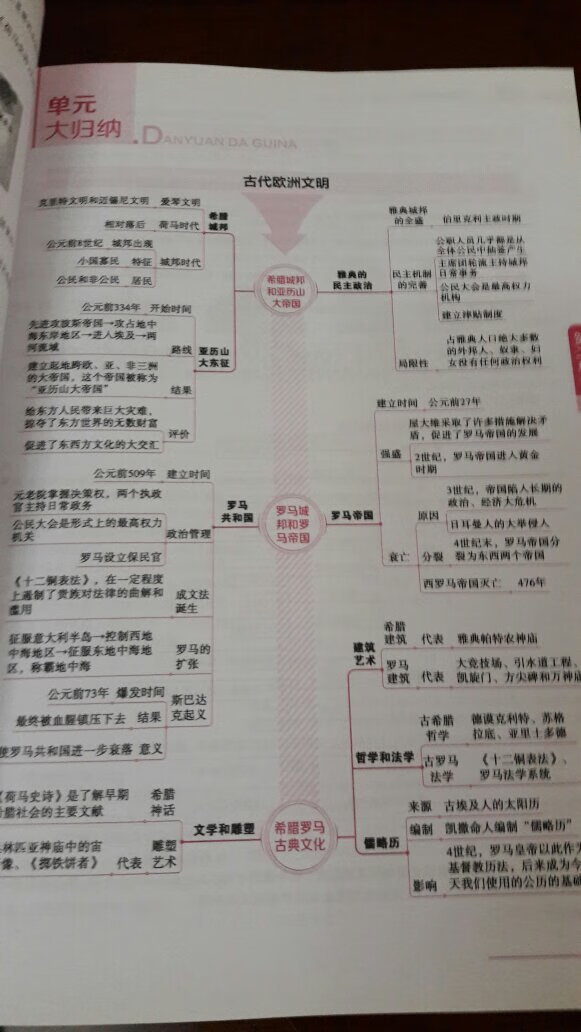 单元
大归纳
.DANYUAN DA GUINA
古代欧洲文明
克里特文明和迈锡尼文明 爱琴文明
相对落后 荷马时代
希腊
城邦
公元前8世纪 城邦出现
小国寡民 特征 城邦时代
公民和非公民 居民
公元前334年 开始时间
先进攻波斯帝国→攻占地中
海东岸地区→进入埃及→两
河流域
路线
亚历山
大东征
建立起地跨欧、亚、非三洲
的大帝国，这个帝国被称为
“亚历山大帝国”
结果
给东方人民带来巨大灾难，
掠夺了东方世界的无数财富
评价
促进了东西方文化的大交汇
希腊城邦
和亚历山
大帝国
雅典的
民主政治
雅典城邦
的全盛
伯里克利主政时期
民主机制
的完善
公职人员几乎都是从
全体公民中抽签产生
主席团轮流主持城邦
日常事务
公民大会是最高权力
机构
建立津贴制度
局限性
占雅典人口绝大多数
的外邦人、奴隶、妇
女没有任何政治权利
公元前509年 建立时间
元老院掌握决策权，两个执政
官主持日常政务
公民大会是形式上的最高权力
机关
政治管理
罗马设立保民官
罗马
共和国
《十二铜表法》，在一定程度
上遏制了贵族对法律的曲解和
滥用
成文法
诞生
征服意大利半岛→控制西地
中海地区→征服东地中海地
区，称霸地中海
罗马的
扩张
公元前73年 爆发时间
最终被血腥镇压下去 结果
使罗马共和国进一步衰落 意义
斯巴达
克起义
罗马城
邦和罗
马帝国
罗马帝国
建立时间 公元前27年
强盛
屋大维采取了许多措施解决矛
盾，促进了罗马帝国的发展
2世纪，罗马帝国进入黄金
时期
衰亡
原因
3世纪，帝国陷入长期的
政治、经济大危机
日耳曼人的大举侵入
分裂
4世纪末，罗马帝国分
裂为东西两个帝国
西罗马帝国灭亡 476年
《荷马史诗》是了解早期
希腊社会的主要文献
希腊
神话
林匹亚神庙中的宙
像、《掷铁饼者》 代表
雕塑
艺术
文学和雕塑
希腊罗马
古典文化
建筑
艺术
希腊
建筑
代表 雅典帕特农神庙
罗马
建筑
代表
大竞技场、引水道工程、
凯旋门、方尖碑和万神庙
哲学和法学
古希腊
哲学
德谟克利特、苏格
拉底、亚里士多德
古罗马
法学
《十二铜表法》、
罗马法学系统
儒略历
来源 古埃及人的太阳历
编制 凯撒命人编制“儒略历”
影响
4世纪，罗马皇帝以此作为
基督教历法，后来成为今
天我们使用的公历的基础